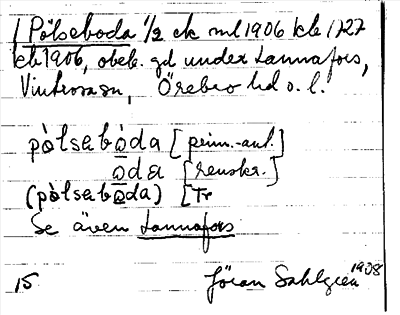 / Pölseboda ½ ck ml 1906 kb 1727
kb 1906, obeb. gd under Lannafors,
Vintrosa sn, Örebro hd o. l.
pò̀lsebò̀da [prim.-ant.]
o̲da [renskr.]
(pò̀lsebo̲da) [Tr
Se även Lannafors
15 Jöran Sahlgren 1908